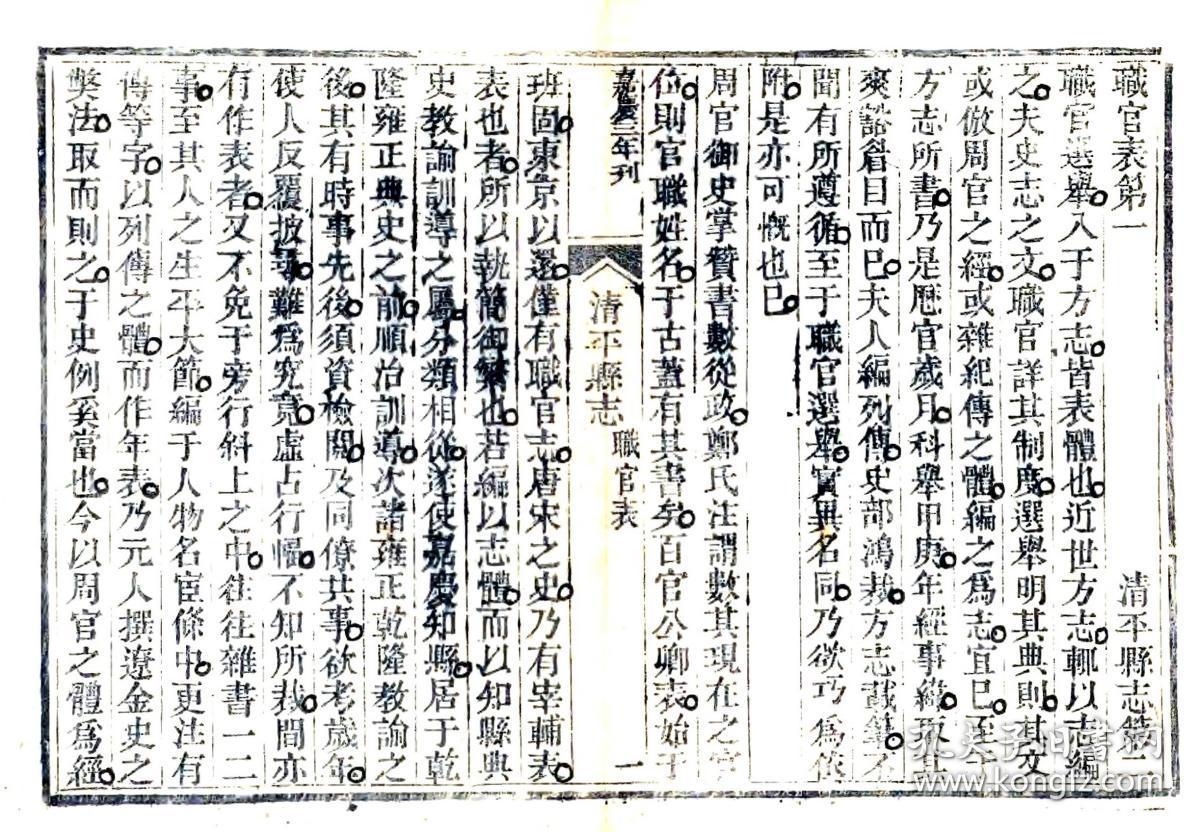 職官表第一 清平縣志第二
職官選舉入于方志皆表體也近世方志輒以志編
之夫史志之文職官詳其制度選舉明其典則其文
或倣周官之經或雜紀傳之體編之爲志宜巳至于
方志所書乃是歷官歲月科舉甲庚年經事緯取其
爽豁眉目而巳夫人編列傳史部鴻裁方志載筆
聞有所遵循至于職官選舉實異名同乃欲巧爲
附是亦可慨也巳
周官御史掌贊書數從政鄭氏注謂數其現在之官
位則官職姓名于古蓋有其書矣百官公卿表始于
嘉慶三年刊
清平縣志
職官表
一
班固東京以還僅有職官志唐宋之史乃有宰輔表
表也者所以執簡御繁也若編以志體而以知縣典
史教諭訓導之屬分類相從遂使嘉慶知縣居于乾
隆雍正典史之前順治訓導次諸雍正乾隆教諭之
後其有時事先後須資檢閱及同僚共事欲考歲年
使人反覆披尋難爲究竟虛占行幅不知所裁間亦
有作表者又不免于旁行斜上之中往往雜書一二
事至其人之生平大節編于人物名宦條中更注有
傳等字以列傳之體而作年表乃元人撰遼金史之
獘法取而則之于史例奚當也今以周官之體爲經
孔夫子旧书网
www.kongfz.com